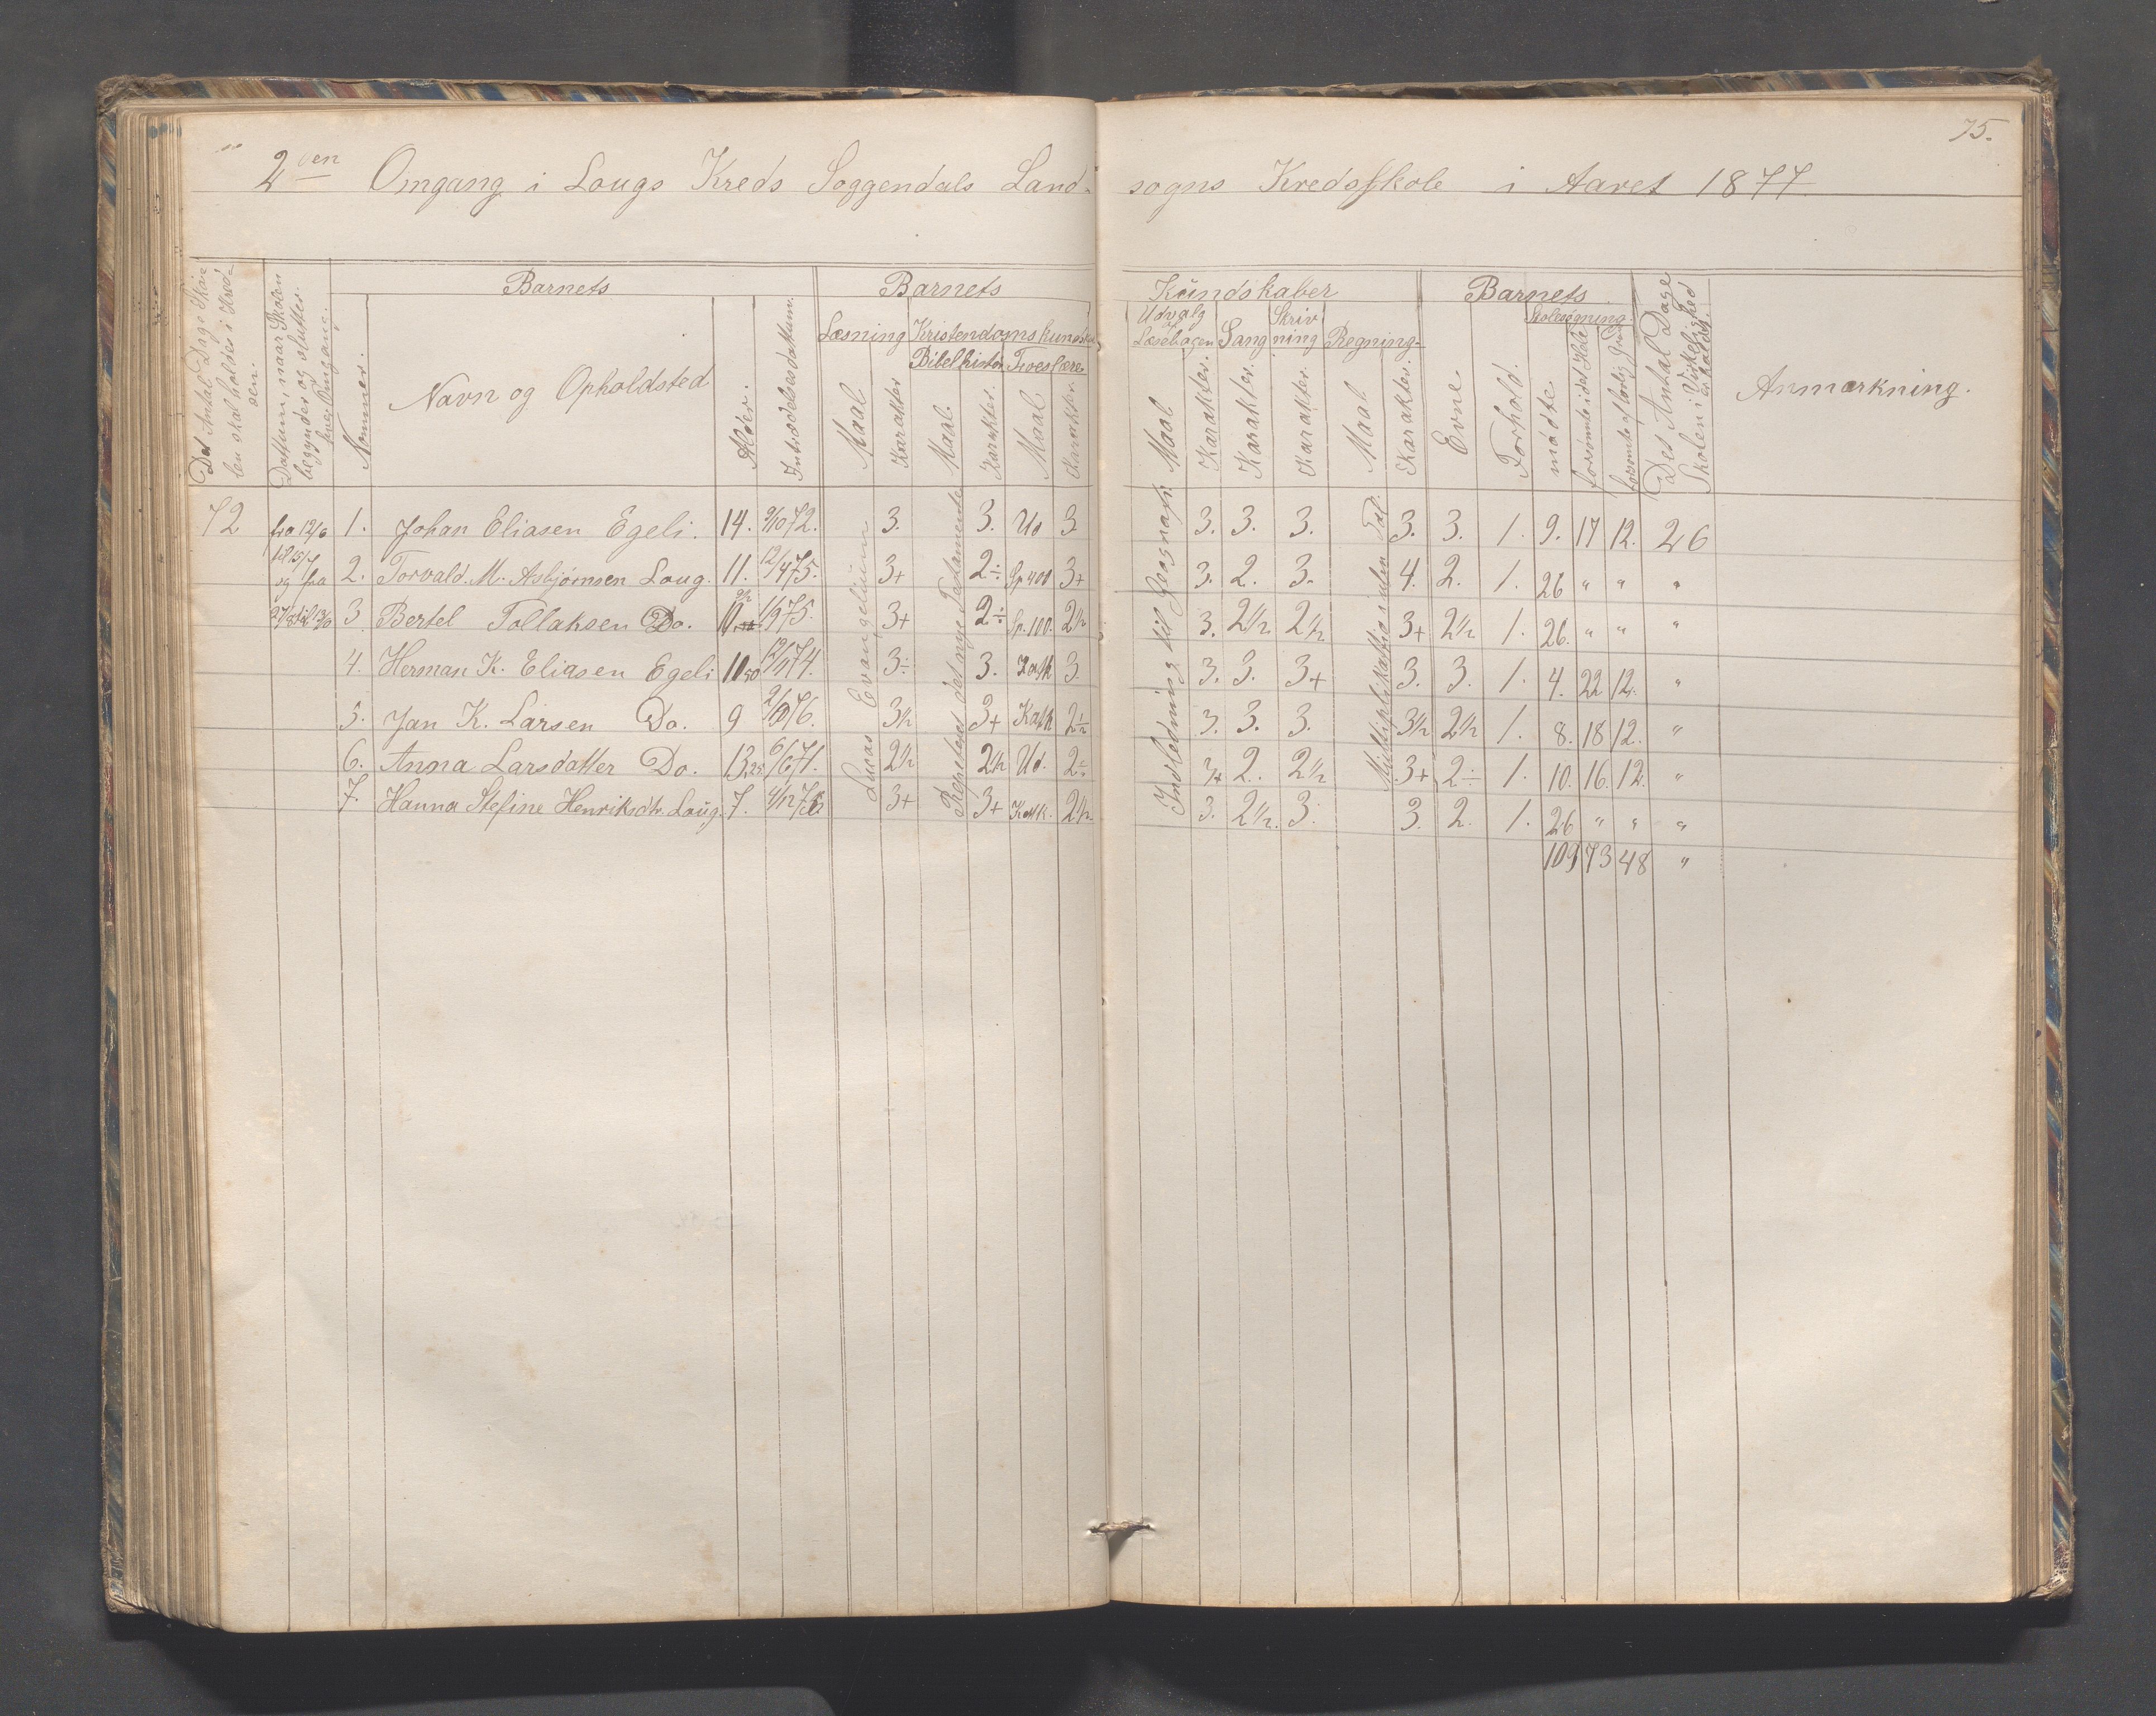 75.
2den Omgang i Lougs Kreds Soggendals Land- sogns Kredsskole i Aaret 1877
Det Antal Dage Skolen skal holdes i Kredsen.
Dattum, naar Skolen begyndes og sluttes hver Omgang.
Barnets
Nummer.
Navn og Opholdsted
Alder.
Indtrædelsesdattum.
Barnets Kundskaber
Læsning Maal Karakter
Kristendomskundskab
Bibelhistorie Maal. Karakter.
Troeslære Maal Karakter.
Udvalg af Læsebogen Maal Karakter.
Sang Karakter.
Skrivning Karakter.
Regning Maal Karakter.
Barnets
Evne
Forhold.
Skolesøgning.
mødte
forsømte i det Hele
forsømte af lovlig Grund
Det Antal Dage Skolen i Virkelighed er holdt.
Anmærkning.
Lucas Evangelium
Repeteret det nye Testamente
Indledning til Geografi
Multiplikation uden Tal.
72 fra 12/6 1. Johan Eliasen Egeli. 14. 9/10 72. 3. 3. Ud 3. 3. 3. 3. 3. 3. 1. 9. 17 12. 26
til 15/7 og fra 2. Torvald. M. Asbjørnsen Loug. 11. 12/4 75. 3+ 2÷ Sp 400 3+ 3. 2. 3. 4. 2. 1. 26 " " "
27/8 til 13/10 3 Bertel Tollaksen Do. 10 1/9 75. 3+ 2÷ Sp. 100. 2½ 3. 2½. 2½ 3+ 2½ 1. 26. " " "
4. Herman K. Eliasen Egeli 10 50 12/11 74. 3÷ 3. Katk 3. 3. 3. 3+ 3. 3. 1. 4. 22 12. "
5. Jan K. Larsen Do. 9 2/10 76. 3½ 3+ Katk 2÷ 3. 3. 3. 3½ 2½ 1. 8. 18 12. "
6. Anna Larsdatter Do. 13,25 6/6 71. 2½ 2½ Ud. 2÷ 3+ 2. 2½ 3+ 2÷ 1. 10. 16. 12. "
7. Hanna Stefine Henriksdtr. Loug. 7. 4/12 76 3+ 3+ Katk. 2½. 3. 2½. 3. 3. 2. 1. 26 " " "
109 73 48 "